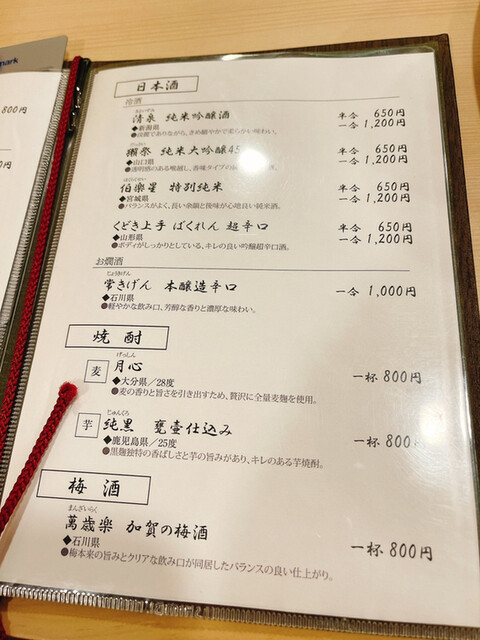 park
800円
日本酒
冷酒
きよいずみ
清泉 純米吟醸酒
半合 650円
◆新潟県
一合 1,200円
●淡麗でありながら、きめ細やかで柔らかい味わい。
だっさい
獺祭 純米大吟醸45
半合 650円
◆山口県
一合 1,200円
●透明感のある喉越し、香味タイプの
はくらくせい
伯楽星 特別純米
半合 650円
◆宮城県
一合 1,200円
●バランスがよく、長い余韻と後味が心地良い純米酒。
くどき上手 ばくれん 超辛口
半合 650円
◆山形県
一合 1,200円
●ボディがしっかりとしている、キレの良い吟醸超辛口酒。
お燗酒
じょうきげん
常きげん 本醸造辛口
一合 1,000円
◆石川県
●軽やかな飲み口、芳醇な香りと濃厚な味わい。
焼酎
げっしん
麦 月心
一杯 800円
◆大分県/28度
●麦の香りと旨さを引き出すため、贅沢に全量麦麹を使用。
じゅんくろ
芋 純黒 甕壷仕込み
一杯 800円
◆鹿児島県/25度
●黒麹独特の香ばしさと芋の旨みがあり、キレのある芋焼酎。
梅酒
まんざいらく
萬歳楽 加賀の梅酒
一杯 800円
◆石川県
●梅本来の旨みとクリアな飲み口が同居したバランスの良い仕上がり。